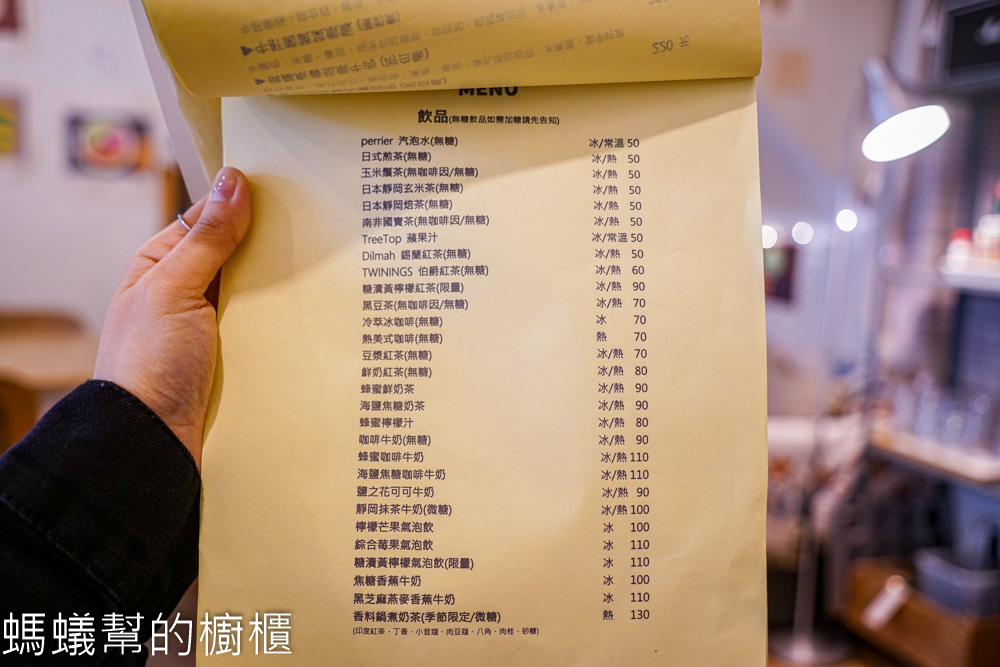 220 元
MENU
飲品(無糖飲品如需加糖請先告知)
perrier 汽泡水(無糖) 冰/常溫 50
日式煎茶(無糖) 冰/熱 50
玉米鬚茶(無咖啡因/無糖) 冰/熱 50
日本靜岡玄米茶(無糖) 冰/熱 50
日本靜岡焙茶(無糖) 冰/熱 50
南非國寶茶(無咖啡因/無糖) 冰/熱 50
TreeTop 蘋果汁 冰/常溫 50
Dilmah 錫蘭紅茶(無糖) 冰/熱 50
TWININGS 伯爵紅茶(無糖) 冰/熱 60
糖漬黃檸檬紅茶(限量) 冰/熱 90
黑豆茶(無咖啡因/無糖) 冰/熱 70
冷萃冰咖啡(無糖) 冰 70
熱美式咖啡(無糖) 熱 70
豆漿紅茶(無糖) 冰/熱 70
鮮奶紅茶(無糖) 冰/熱 80
蜂蜜鮮奶茶 冰/熱 90
海鹽焦糖奶茶 冰/熱 90
蜂蜜檸檬汁 冰/熱 80
咖啡牛奶(無糖) 冰/熱 90
蜂蜜咖啡牛奶 冰/熱 110
海鹽焦糖咖啡牛奶 冰/熱 110
鹽之花可可牛奶 冰/熱 90
靜岡抹茶牛奶(微糖) 冰/熱 100
檸檬芒果氣泡飲 冰 100
綜合莓果氣泡飲 冰 110
糖漬黃檸檬氣泡飲(限量) 冰 110
焦糖香蕉牛奶 冰 100
黑芝麻燕麥香蕉牛奶 冰 110
香料鍋煮奶茶(季節限定/微糖) 熱 130
(印度紅茶、丁香、小荳蔻、肉豆蔻、八角、肉桂、砂糖)
螞蟻幫的櫥櫃